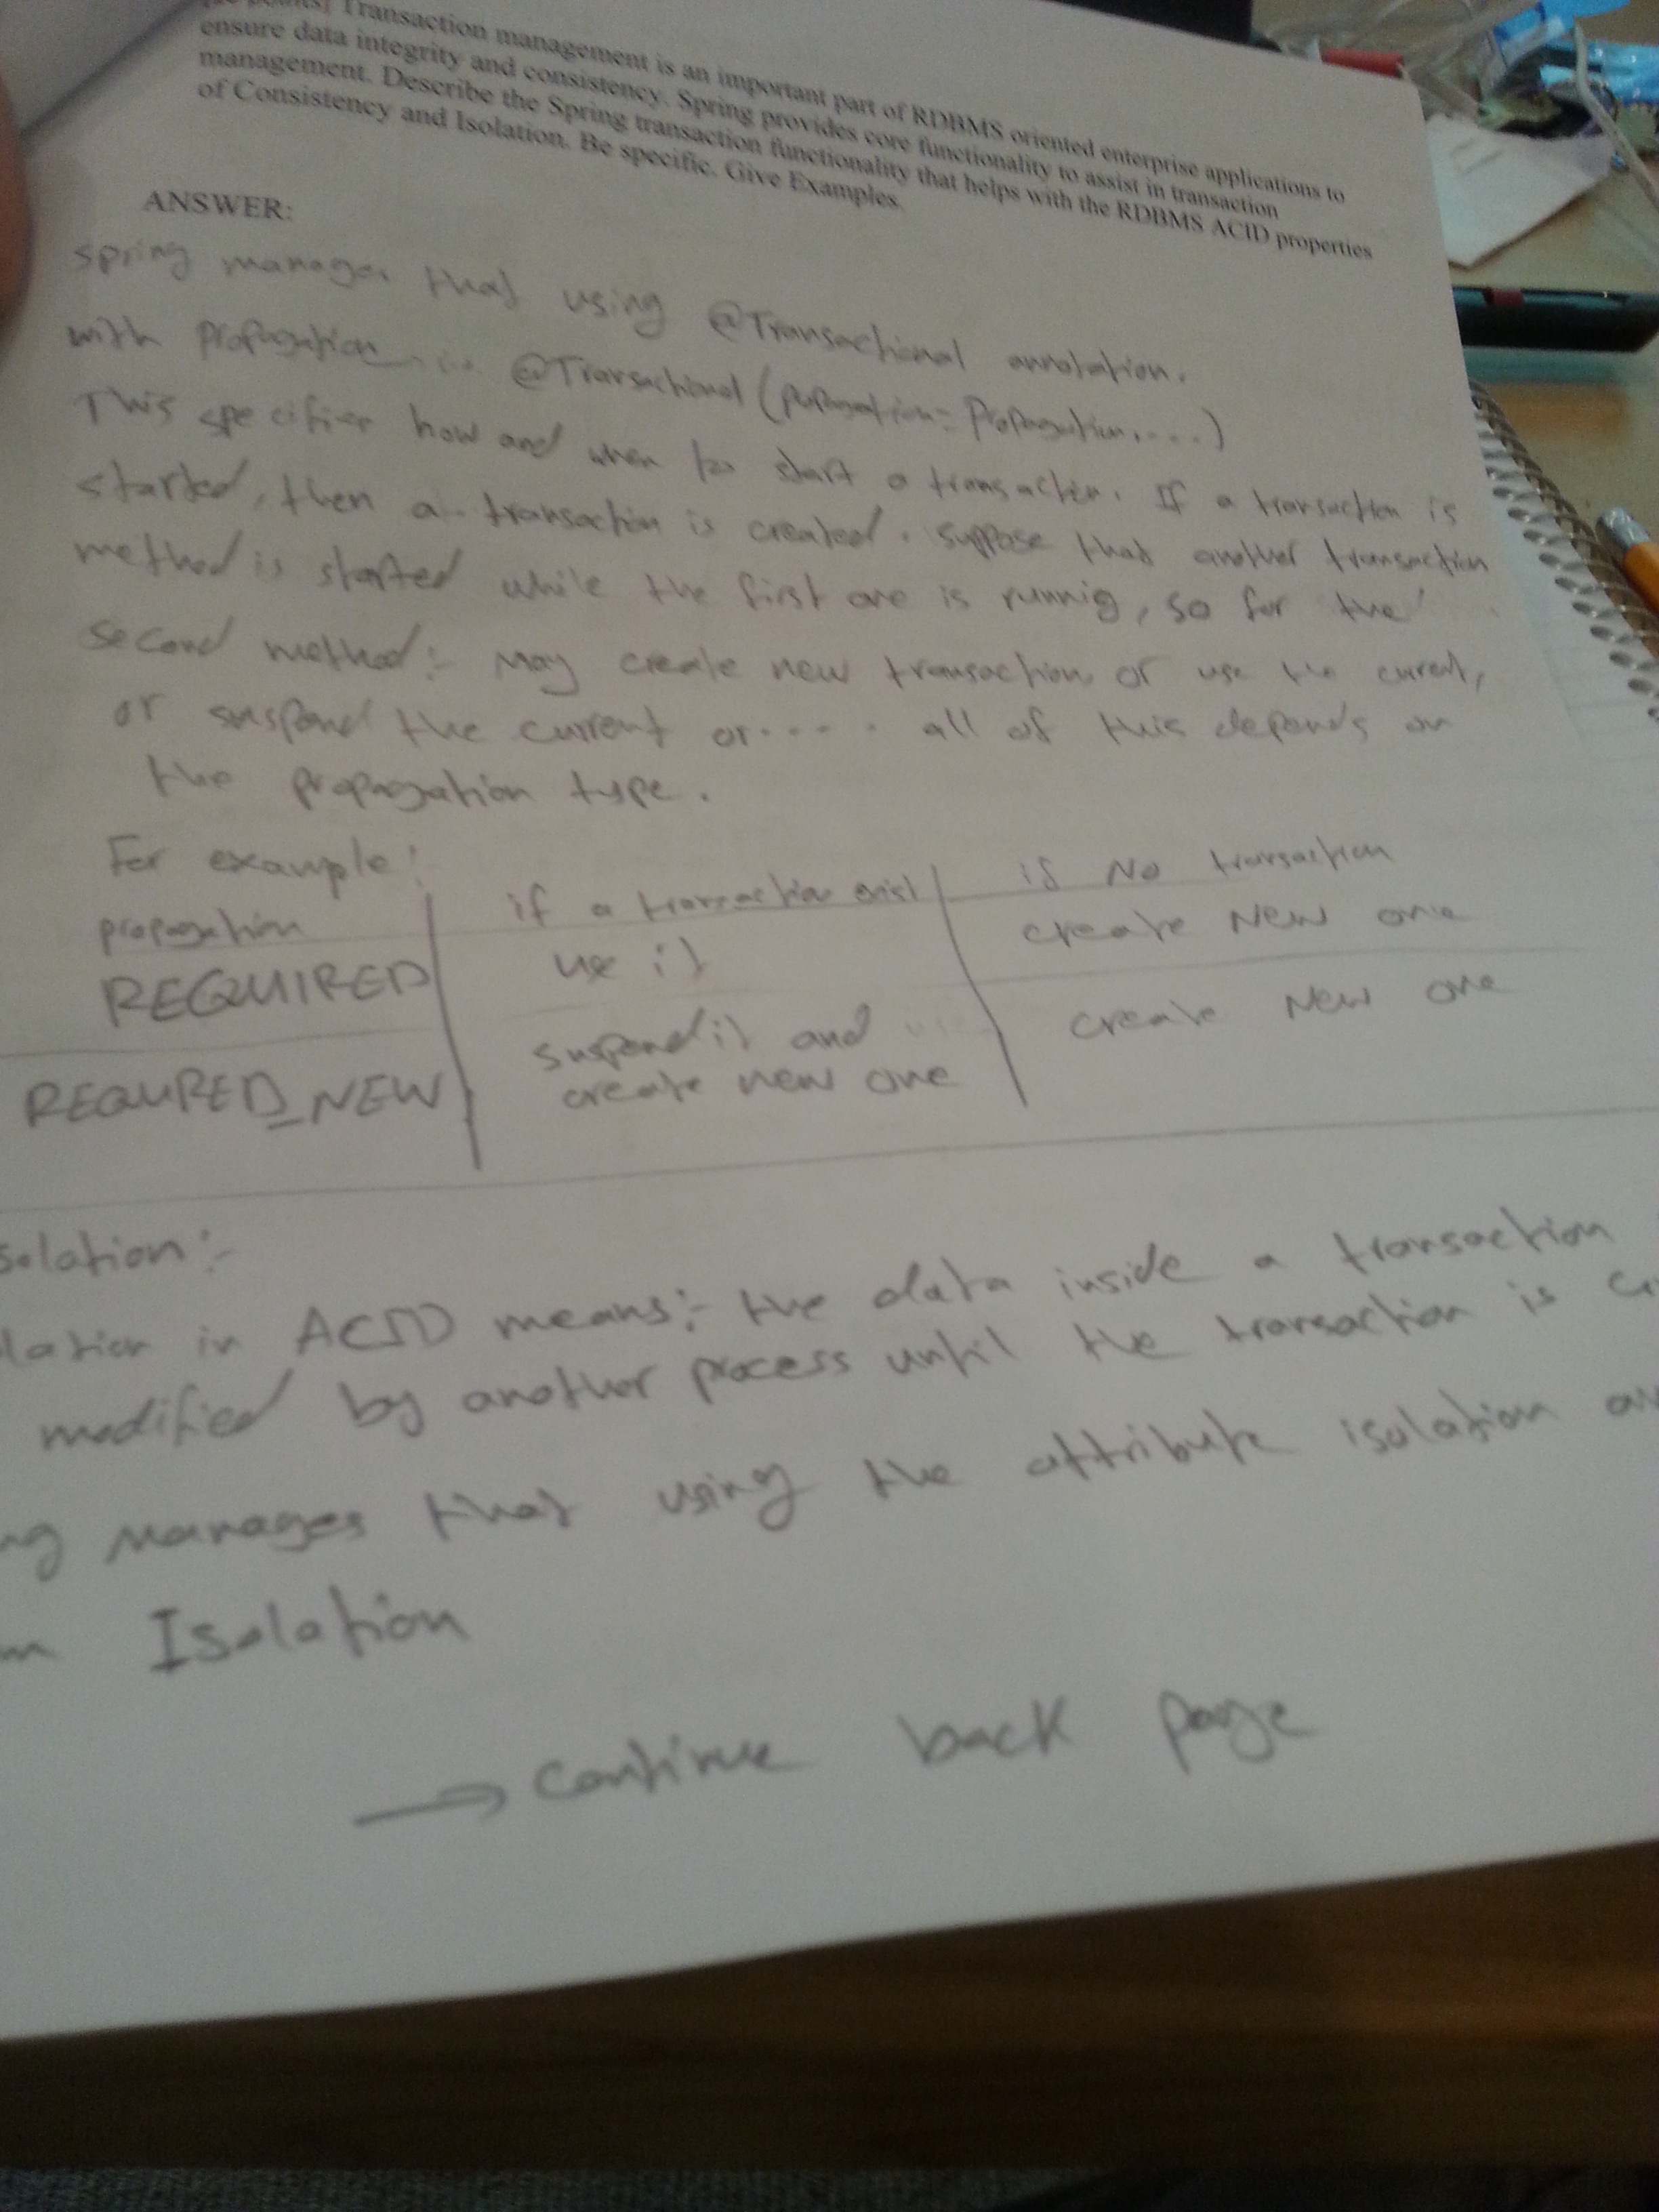 Transaction management is an important part of RDBMS oriented enterprise applications to
ensure data integrity and consistency. Spring provides core functionality to assist in transaction
management. Describe the Spring transaction functionality that helps with the RDBMS ACID properties
of Consistency and Isolation. Be specific. Give Examples.
ANSWER:
spring manages that using @Transactional annotation.
with propagation @Transactional (propagation= Propagation.....)
This specifies how and when to start a transaction. If a transaction is
started, then a transaction is created. suppose that another transaction
method is started while the first one is runnig, so for the
second method:- May create new transaction, or use the current,
or suspend the current or..... all of this depends on
the propagation type.
For example:
propagation if a transaction exist if No transaction
REQUIRED use it create New one
REQUIRED_NEW suspend it and create New one
create new one
solation:-
lation in ACID means:- the data inside a transaction
modified by another process until the transaction is
ng manages that using the attribute isolation
Isolation
→ continue back page